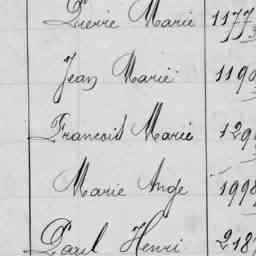 Pierre Marie 1177
Jean Marie 1190
Francois Marie 129
Marie Ange 1998
Paul Henri 218